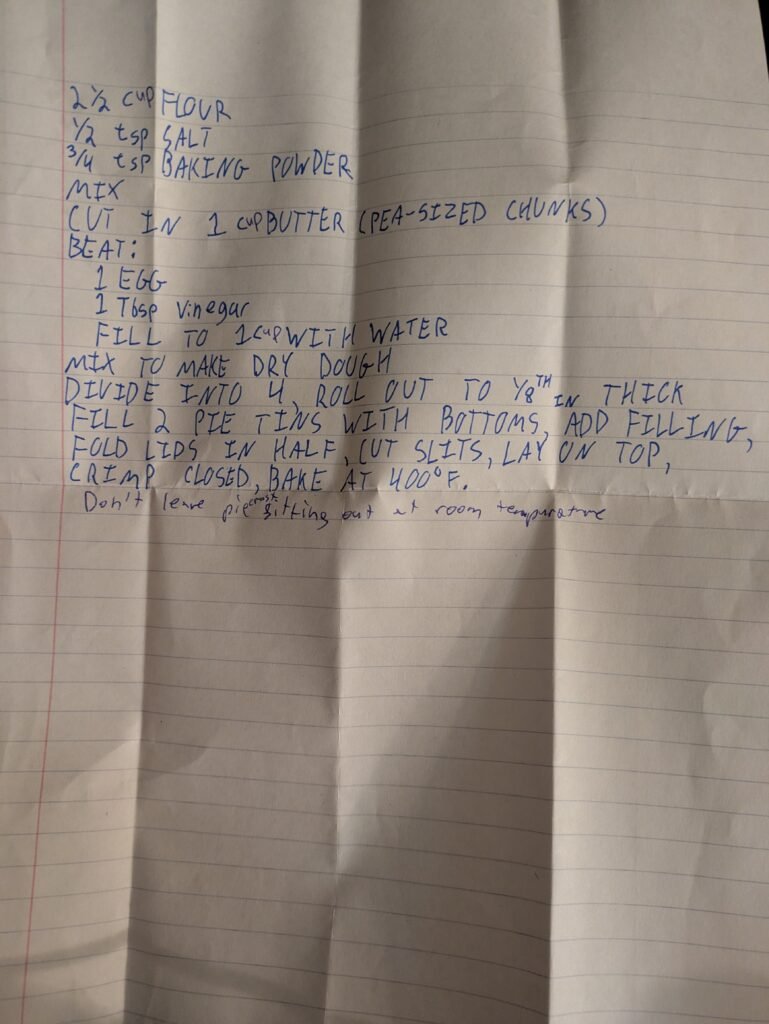 2 1/2 cup FLOUR
1/2 tsp SALT
3/4 tsp BAKING POWDER
MIX
CUT IN 1 cup BUTTER (PEA-SIZED CHUNKS)
BEAT:
1 EGG
1 Tbsp vinegar
FILL TO 1 cup WITH WATER
MIX TO MAKE DRY DOUGH
DIVIDE INTO 4, ROLL OUT TO 1/8TH IN THICK
FILL 2 PIE TINS WITH BOTTOMS, ADD FILLING,
FOLD LIDS IN HALF, CUT SLITS, LAY ON TOP,
CRIMP CLOSED, BAKE AT 400°F.
Don't leave pie crust sitting out at room tempurature